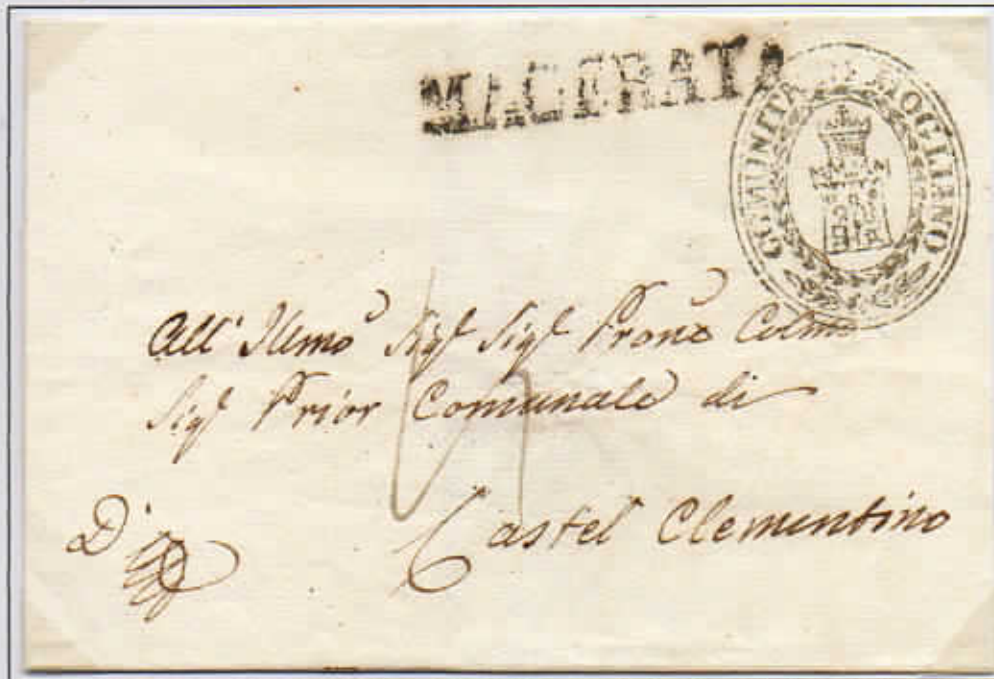 MACERATA
COMUNITA DI MOGLIANO
All' Illmo Sigr Sigr Prone Colmo
Sigr Prior Comunale di
Castel Clementino